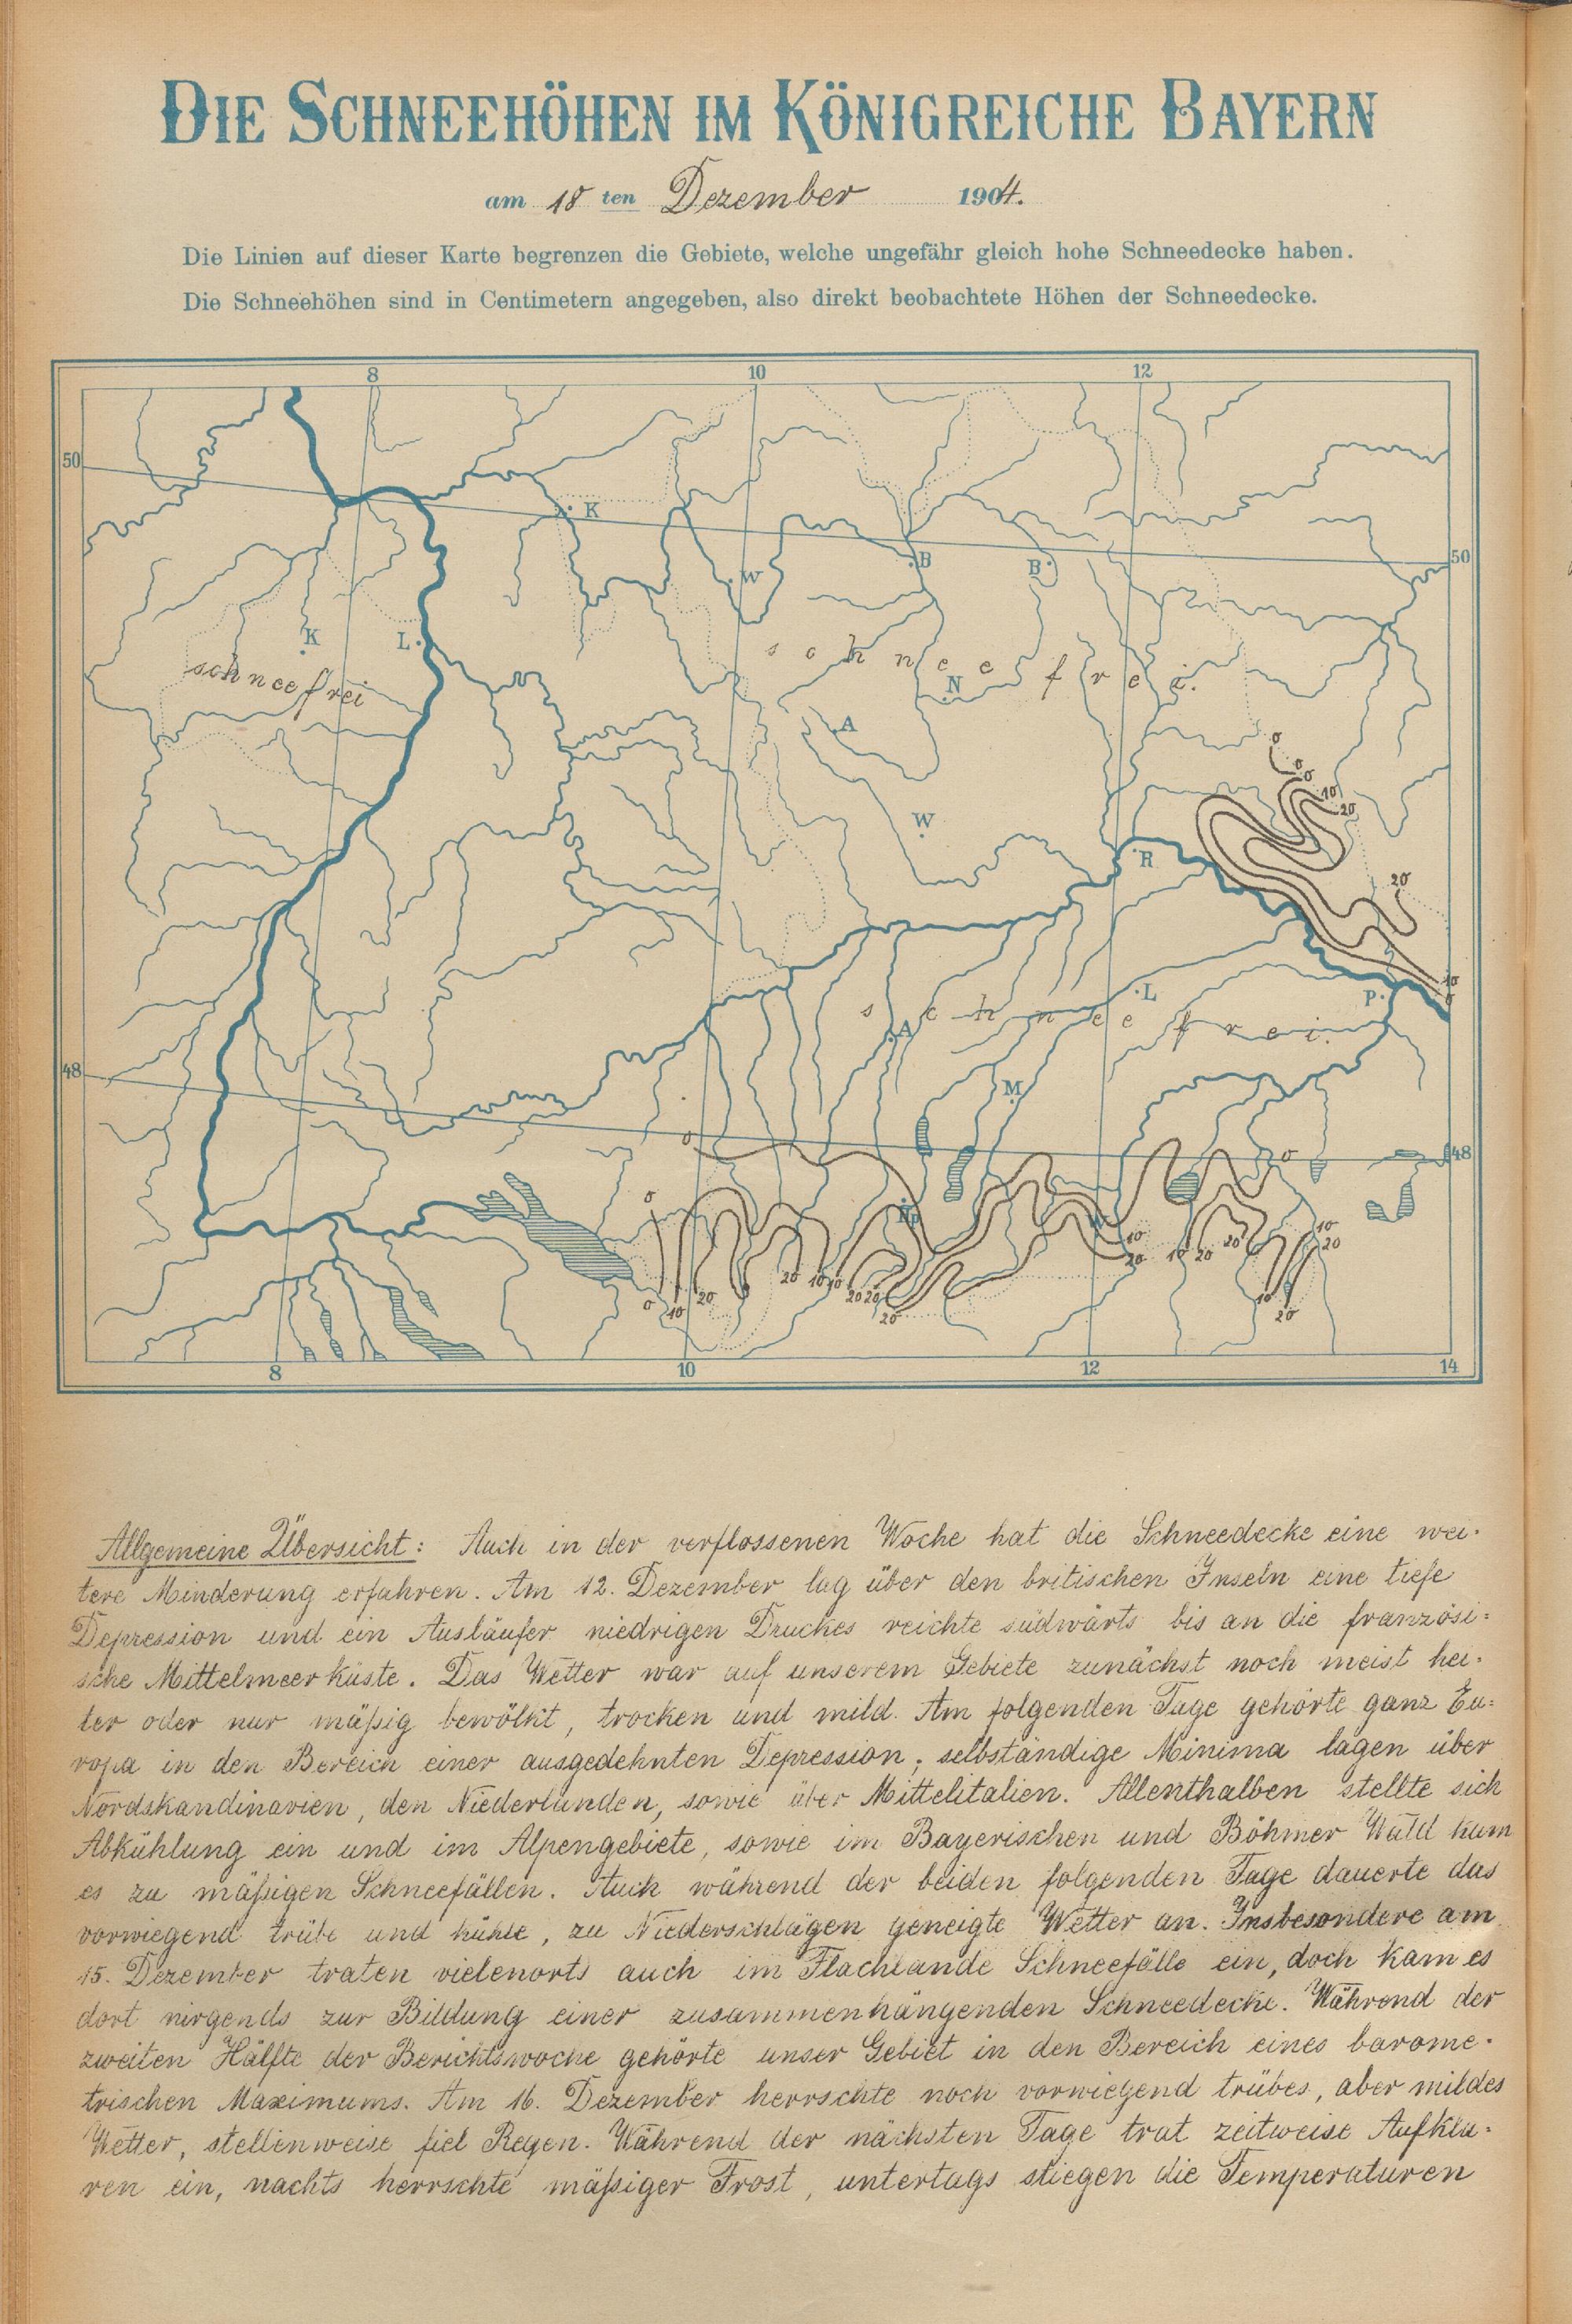 DIE SCHNEEHÖHEN IM KÖNIGREICHE BAYERN
am 18 ten Dezember 1904.
Die Linien auf dieser Karte begrenzen die Gebiete, welche ungefähr gleich hohe Schneedecke haben.
Die Schneehöhen sind in Centimetern angegeben, also direkt beobachtete Höhen der Schneedecke.
8 10 12
50
K
50
B
B
W
K
L
schneefrei
schneefrei.
N
A
0
0
0
10
20
W
R
20
10
0
L
P
schneefrei.
A
48
M
0
48
0
0
10
20
10
20
10
20
20
10
20
0
10
20
20
10
10
20
20
20
10
20
8 10 12 14
Allgemeine Übersicht: Auch in der verflossenen Woche hat die Schneedecke eine wei-
tere Minderung erfahren. Am 12. Dezember lag über den britischen Inseln eine tiefe
Depression und ein Ausläufer niedrigen Druckes reichte südwärts bis an die französi-
sche Mittelmeerküste. Das Wetter war auf unserem Gebiete zunächst noch meist hei-
ter oder nur mäßig bewölkt, trocken und mild. Am folgenden Tage gehörte ganz Eu-
ropa in den Bereich einer ausgedehnten Depression; selbständige Minima lagen über
Nordskandinavien, den Niederlanden, sowie über Mittelitalien. Allenthalben stellte sich
Abkühlung ein und im Alpengebiete, sowie im Bayerischen und Böhmer Wald kam
es zu mäßigen Schneefällen. Auch während der beiden folgenden Tage dauerte das
vorwiegend trübe und kühle, zu Niederschlägen geneigte Wetter an. Insbesondere am
15. Dezember traten vielenorts auch im Flachlande Schneefälle ein, doch kam es
dort nirgends zur Bildung einer zusammenhängenden Schneedecke. Während der
zweiten Hälfte der Berichtswoche gehörte unser Gebiet in den Bereich eines barome-
trischen Maximums. Am 16. Dezember herrschte noch vorwiegend trübes, aber mildes
Wetter, stellenweise fiel Regen. Während der nächsten Tage trat zeitweise Aufkla-
ren ein, nachts herrschte mäßiger Frost, untertags stiegen die Temperaturen